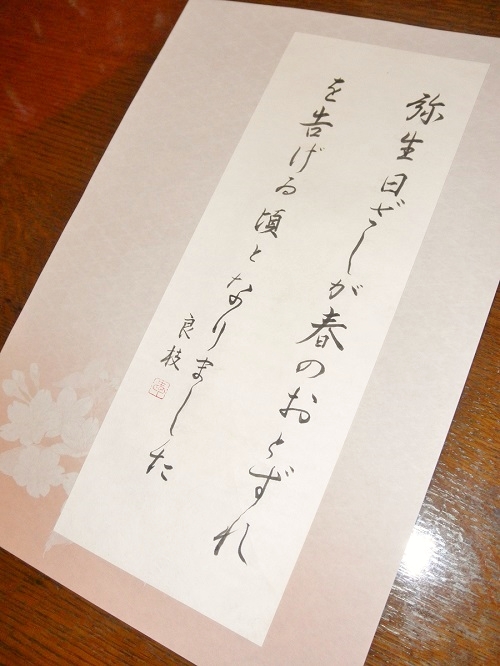 弥生日ざしが春のおとずれ
を告げる頃となりました
良枝